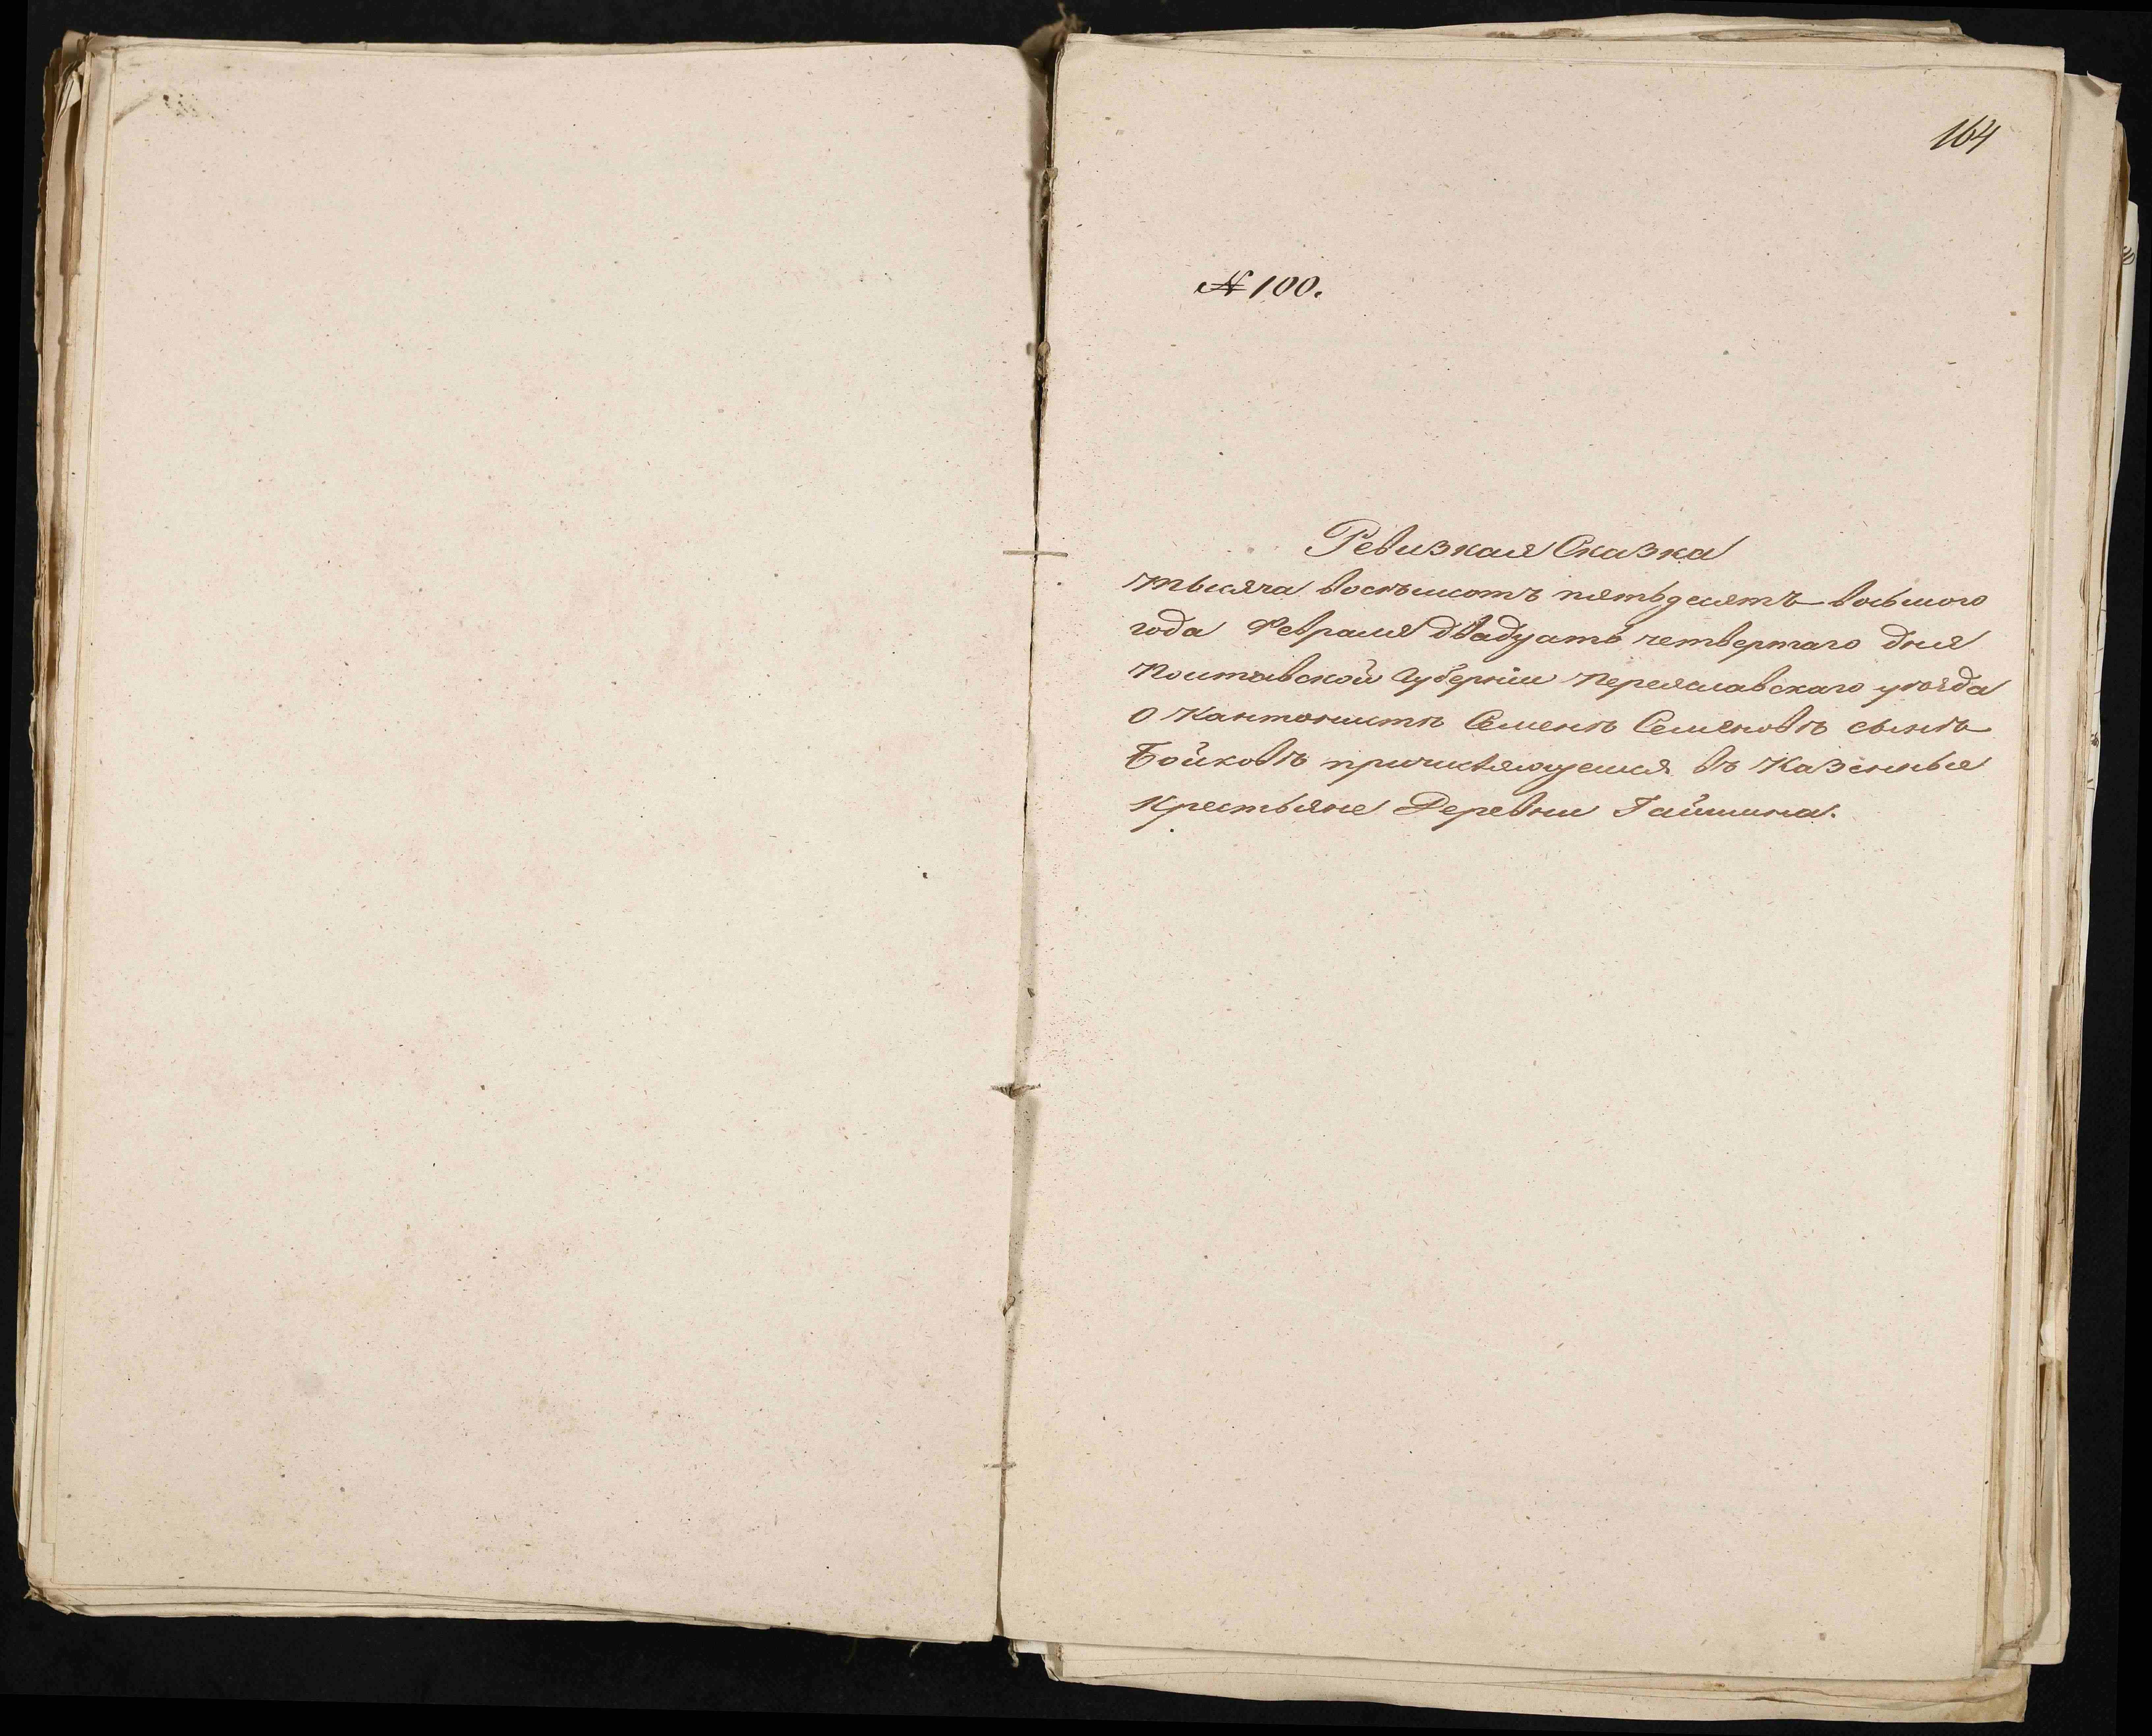 164
№ 100.
Ревизкая Сказка
тысяча восѣмсотъ пятьдесятъ восьмого
года Февраля двадцать четвертаго дня
Полтавской Губерніи Переяславскаго уѣзда
О Кантонистѣ Семенѣ Семеновѣ сынѣ
Бойковѣ причисляющемся въ Казенные
Крестьяне Деревни Гайшина.